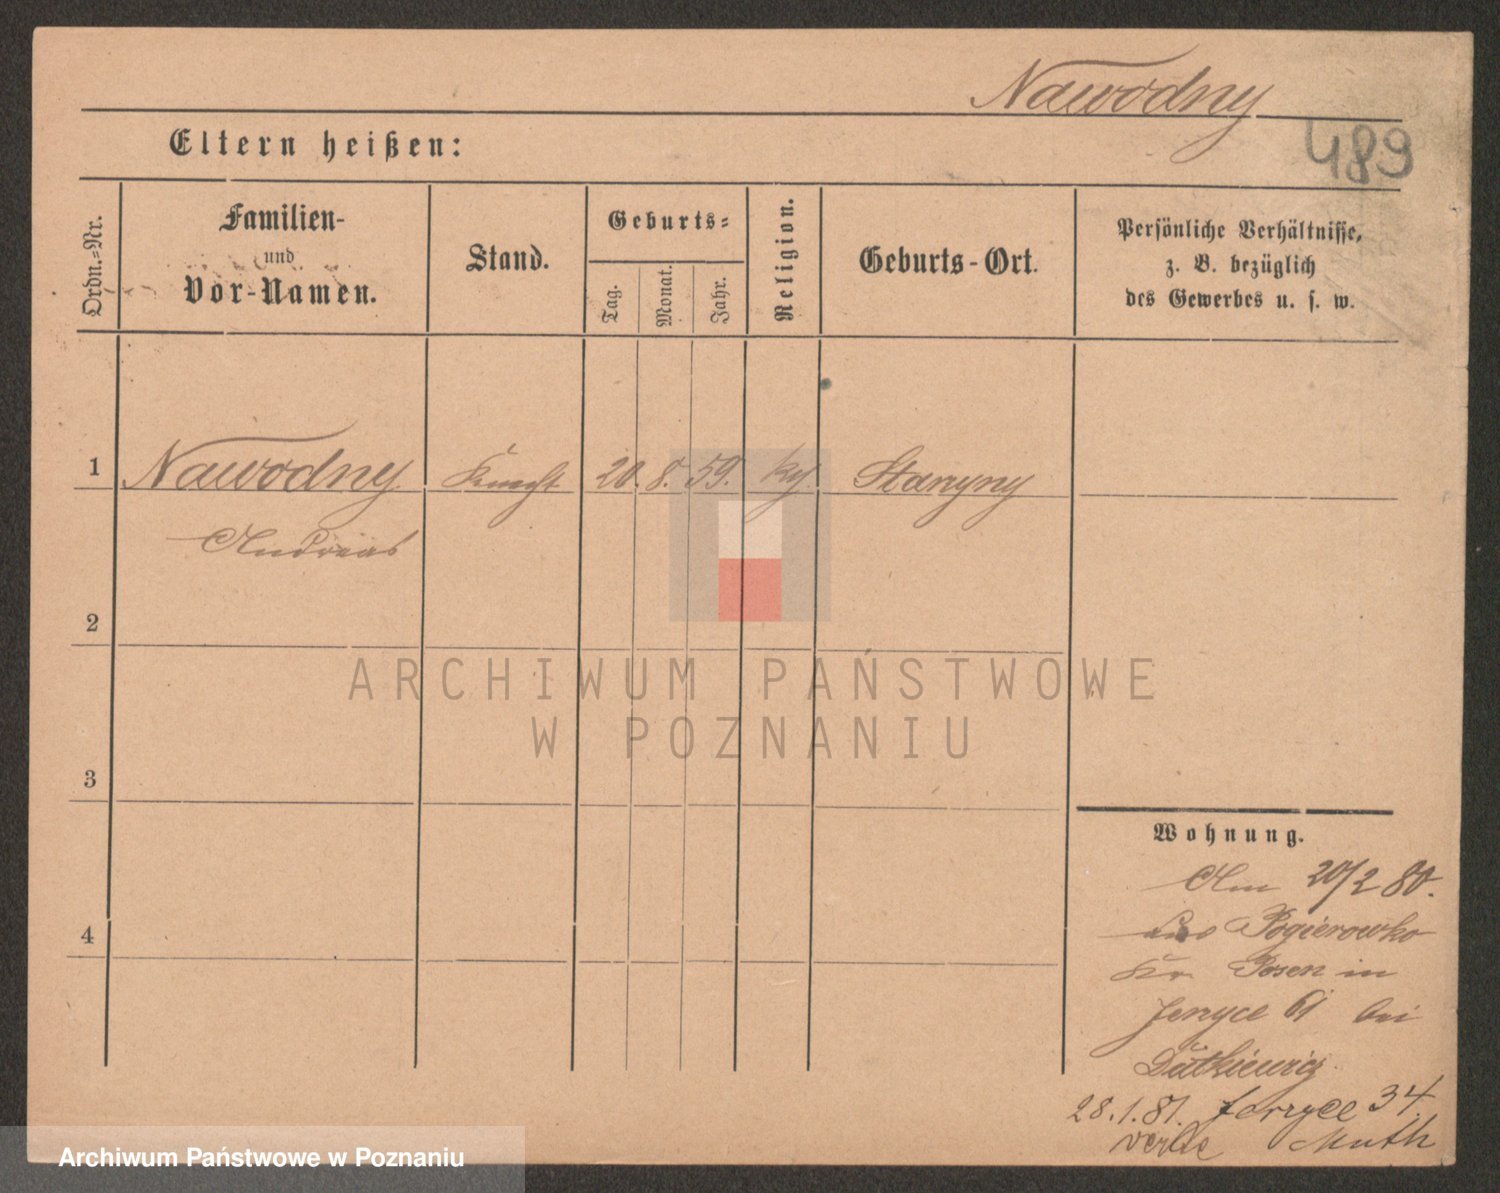 Nawodny
489
Eltern heißen:
Ordn.=Nr.
Familien-
und
Vor-Namen.
Stand.
Geburts=
Tag.
Monat.
Jahr.
Religion.
Geburts-Ort.
Persönliche Verhältnisse,
z. B. bezüglich
des Gewerbes u. s. w.
1 Nawodny Knecht 20. 8. 59. Stanyny
Andreas
2
3
4
Wohnung.
Am 20/2 80.
aus Pogierowko
Kr. Posen in
Jerzyce 61 bei
Dutkiewicz
28.1.81. Jerzyce 34
Muth
ARCHIWUM PAŃSTWOWE
W POZNANIU
Archiwum Państwowe w Poznaniu